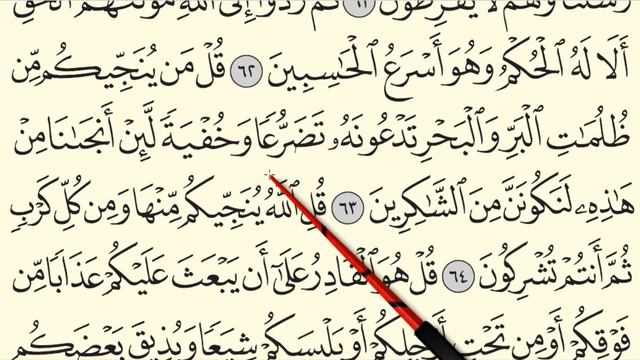 رُسُلُنَا وَهُمْ لَا يُفَرِّطُونَ ٦١ ثُمَّ رُدُّوٓا۟ إِلَى ٱللَّهِ مَوْلَىٰهُمُ ٱلْحَقِّ
أَلَا لَهُ ٱلْحُكْمُ وَهُوَ أَسْرَعُ ٱلْحَٰسِبِينَ ٦٢ قُلْ مَن يُنَجِّيكُم مِّن
ظُلُمَٰتِ ٱلْبَرِّ وَٱلْبَحْرِ تَدْعُونَهُۥ تَضَرُّعًا وَخُفْيَةً لَّئِنْ أَنجَىٰنَا مِنْ
هَٰذِهِۦ لَنَكُونَنَّ مِنَ ٱلشَّٰكِرِينَ ٦٣ قُلِ ٱللَّهُ يُنَجِّيكُم مِّنْهَا وَمِن كُلِّ كَرْبٍ
ثُمَّ أَنتُمْ تُشْرِكُونَ ٦٤ قُلْ هُوَ ٱلْقَادِرُ عَلَىٰٓ أَن يَبْعَثَ عَلَيْكُمْ عَذَابًا مِّن
فَوْقِكُمْ أَوْ مِن تَحْتِ أَرْجُلِكُمْ أَوْ يَلْبِسَكُمْ شِيَعًا وَيُذِيقَ بَعْضَكُم